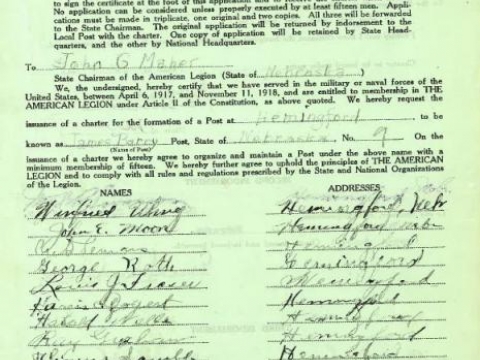 to sign the certificate at the foot of this application and to receive
No application can be considered unless properly executed by at least fifteen men. Appli-
cations must be made in triplicate, one original and two copies. All three will be forwarded
to the State Chairman. The original application will be returned by indorsement to the
Local Post with the charter. One copy of application will be retained by State Head-
quarters, and the other by National Headquarters.
To John G Maher
State Chairman of the American Legion (State of Nebraska)
We, the undersigned, hereby certify that we have served in the military or naval forces of the
United States, between April 6, 1917, and November 11, 1918, and are entitled to membership in THE
AMERICAN LEGION under Article II of the Constitution, as above quoted. We hereby request
issuance of a charter for the formation of a Post at Hemingford to be
known as James Barry Post, State of Nebraska No. 9 On the
(Name of Post)
issuance of a charter we hereby agree to organize and maintain a Post under the above name with a
minimum membership of fifteen. We hereby further agree to uphold the principles of THE AMERICAN
LEGION and to comply with all rules and regulations prescribed by the State and National Organizations
of the Legion.
NAMES ADDRESSES
Winfred Hemingford, Neb
John E. Moore Hemingford Nebr
Hemingford
George Roth Hemingford
Louis J Hemingford
Hemingford
Harold Wells Hemingford
Hemingford
Hemingford